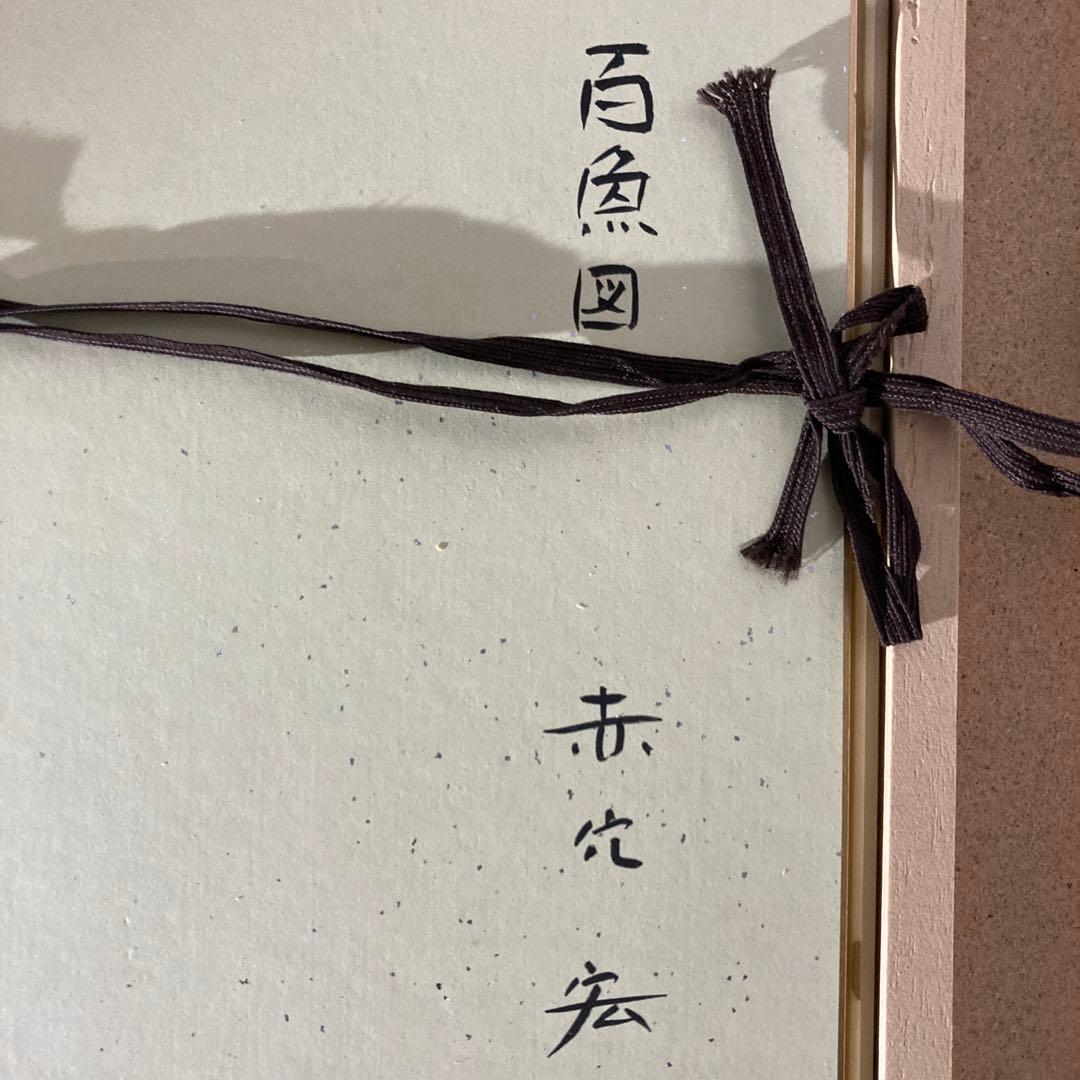 百魚図
赤穴宏